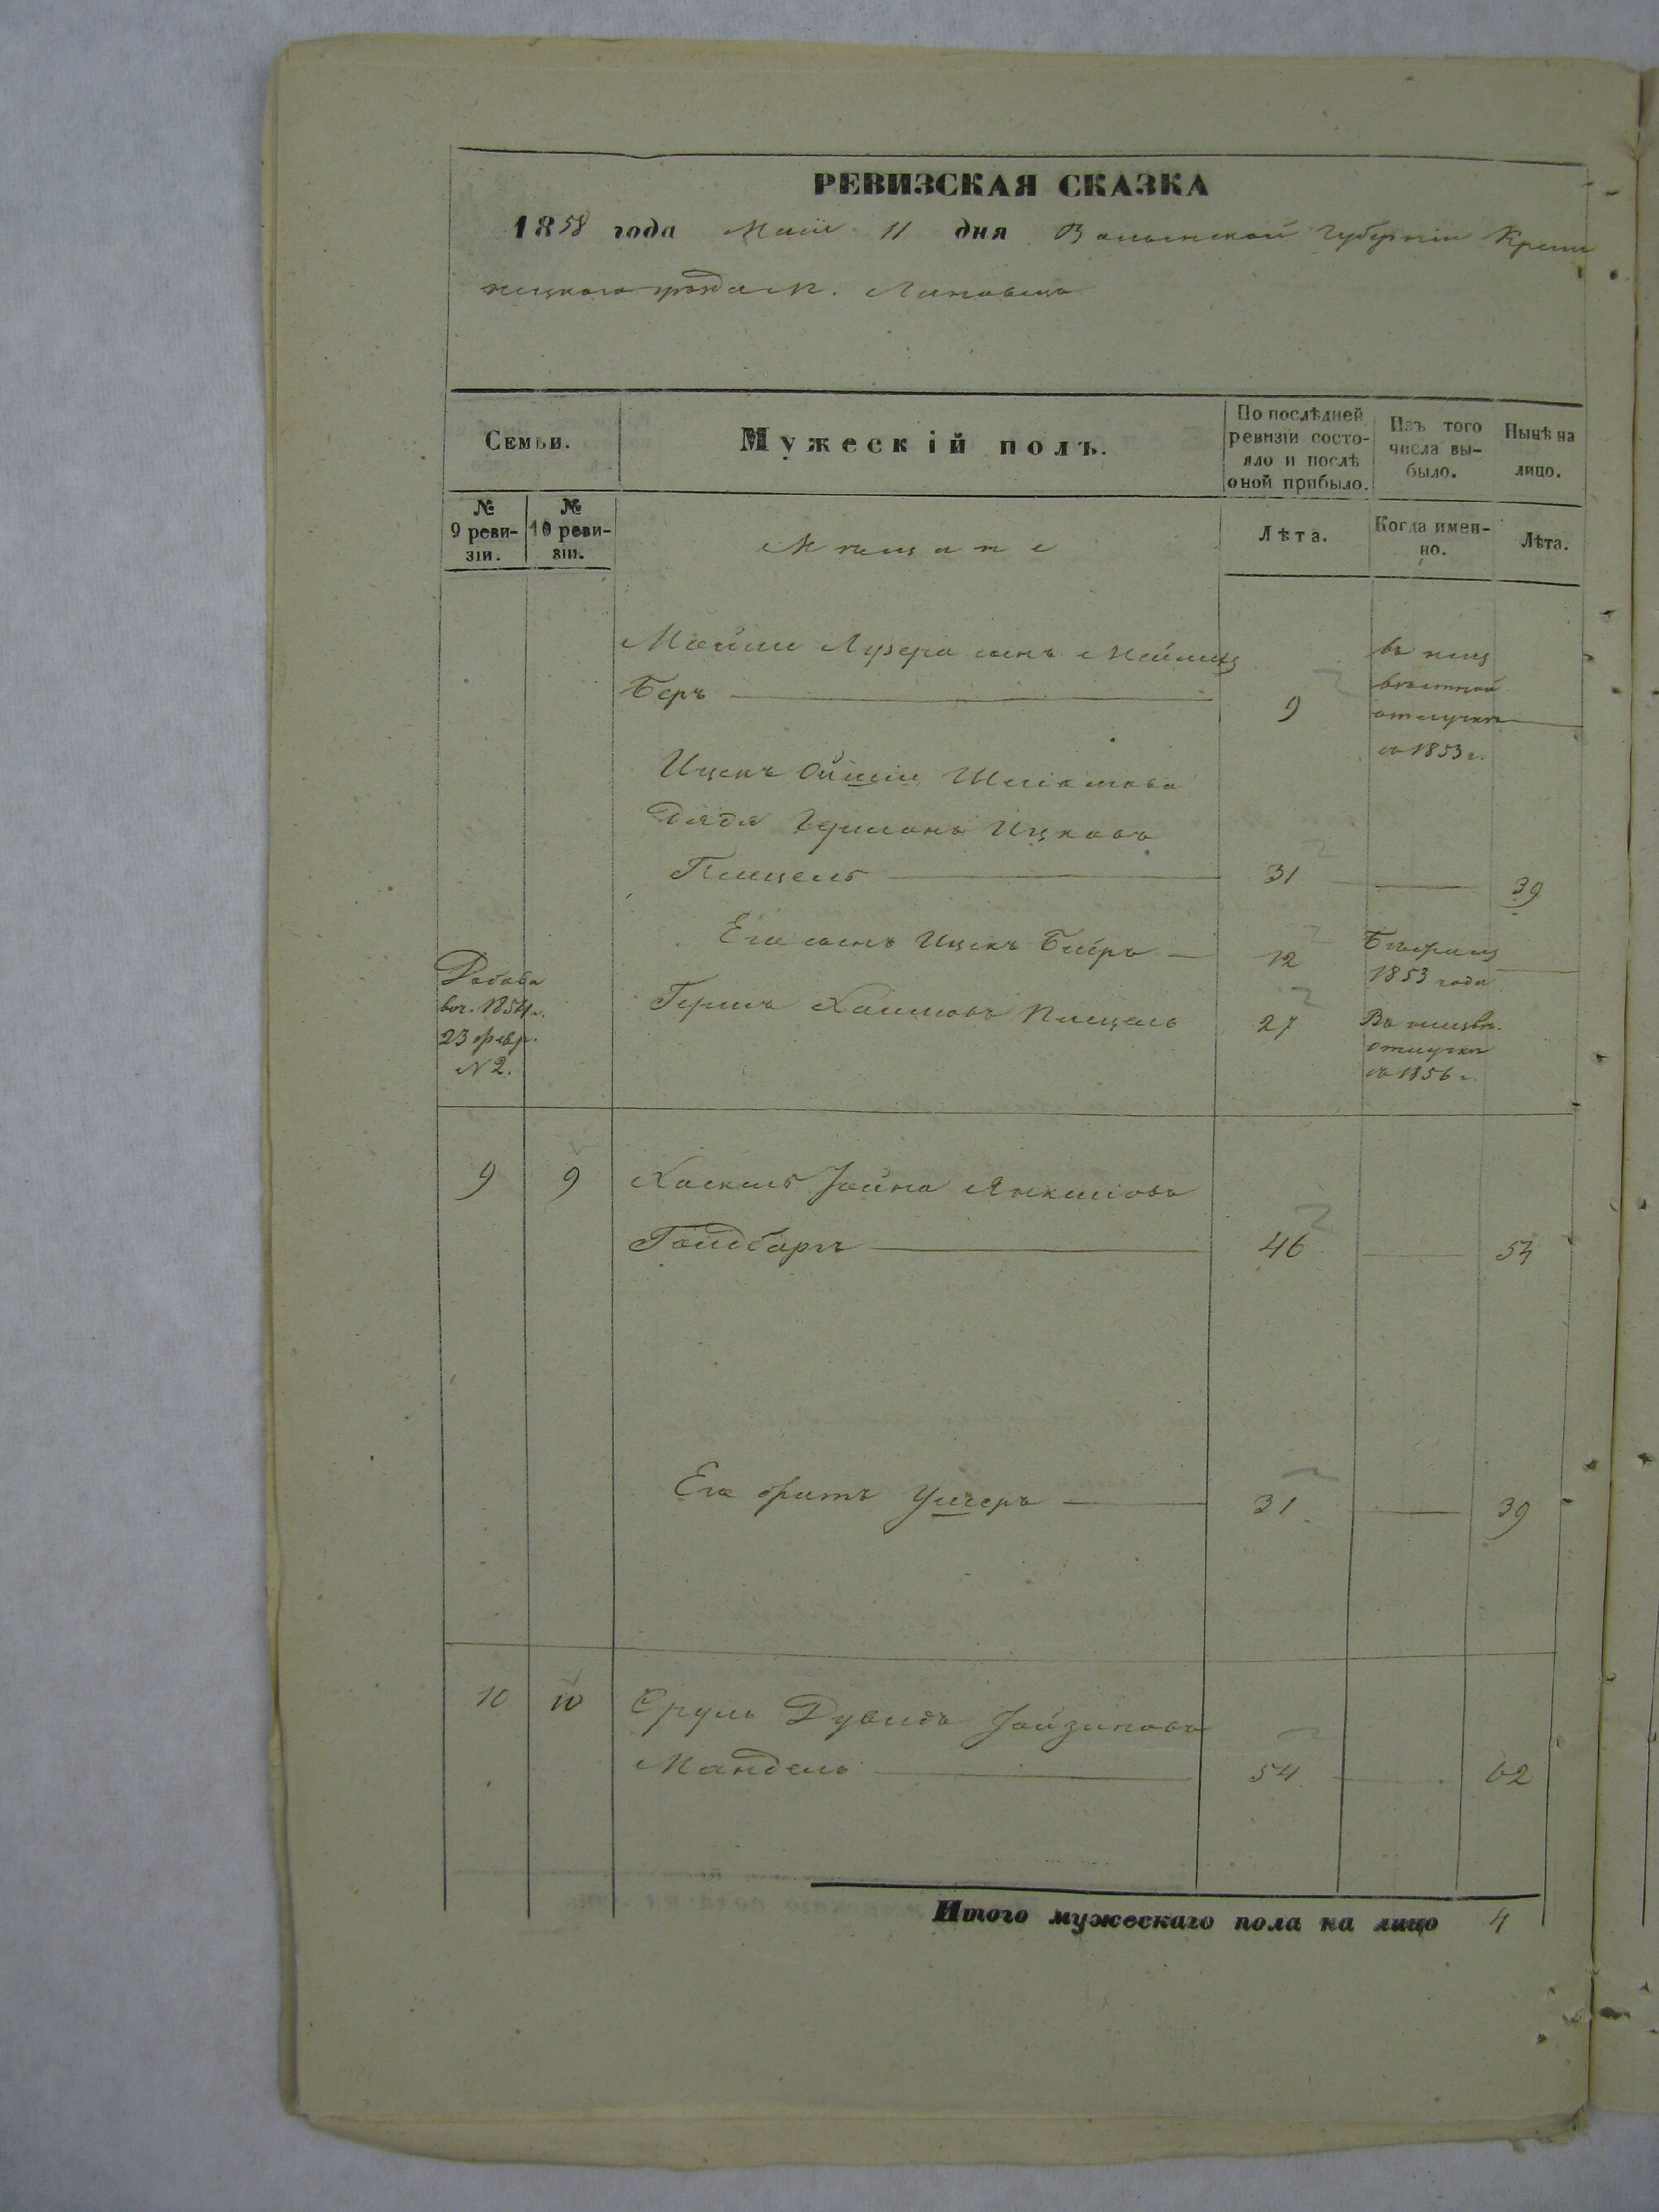 РЕВИЗСКАЯ СКАЗКА
1858 года Маія 11 дня Волынской губерніи Креме
нецкого уезда м. Лановецъ
Семьи.
Мужескій полъ.
По послѣдней ревизіи состояло и послѣ оной прибыло.
Изъ того числа выбыло.
Нынѣ на лицо.
№ 9 ревизіи.
№ 10 ревизіи.
Мѣщане
Лѣта.
Когда именно.
Лѣта.
Мошки Лузера сынъ
Беръ
9
въ неиз
вѣстной
отлучкѣ
съ 1853 г.
Ицекъ
Дядя Гершонъ Ицковъ
31
39
Его сынъ Ицекъ Беръ
12
1853 года
Добавл
1854 г.
23 февр.
№ 2.
Гершъ Хаимовъ
27
Въ
отлучкѣ
съ 1856 г.
9
9
Хаскель Іойна Янкелiовъ
Гольдбаръ
46
54
Его братъ Ушеръ
31
39
10
10
Сруль Дувидъ
Мандель
54
62
Итого мужескаго пола на лицо 4